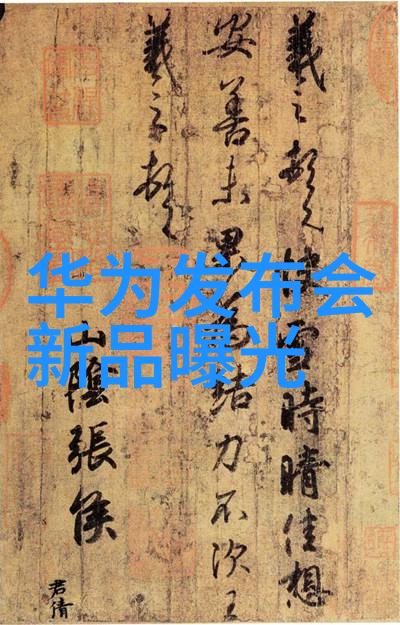 华为发布会
新品曝光
羲之頓首快雪時晴佳想
安善未果為結力不次王
羲之頓首
山陰張侯
君倩